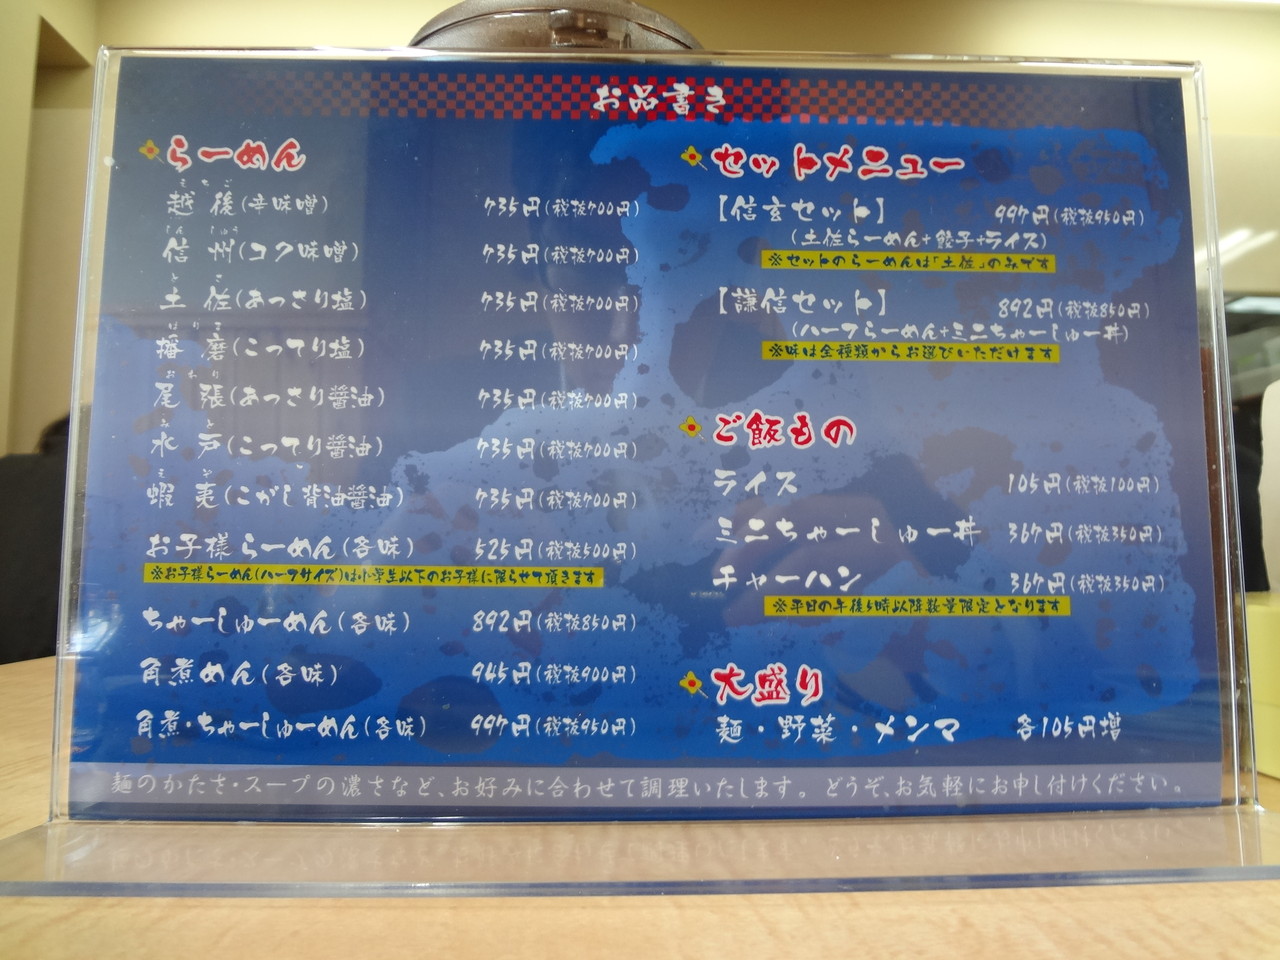 お品書き
らーめん
えちご
越後(辛味噌) 735円(税抜700円)
しんしゅう
信州(コク味噌) 735円(税抜700円)
とさ
土佐(あっさり塩) 735円(税抜700円)
はりま
播磨(こってり塩) 735円(税抜700円)
おわり
尾張(あっさり醤油) 735円(税抜700円)
みと
水戸(こってり醤油) 735円(税抜700円)
えぞ
蝦夷(こがし背油醤油) 735円(税抜700円)
お子様らーめん(各味) 525円(税抜500円)
※お子様らーめん(ハーフサイズ)は小学生以下のお子様に限らせて頂きます
ちゃーしゅーめん(各味) 892円(税抜850円)
角煮めん(各味) 945円(税抜900円)
角煮・ちゃーしゅーめん(各味) 997円(税抜950円)
セットメニュー
【信玄セット】 997円(税抜950円)
(土佐らーめん+餃子+ライス)
※セットのらーめんは「土佐」のみです
【謙信セット】 892円(税抜850円)
(ハーフらーめん+ミニちゃーしゅー丼)
※味は全種類からお選びいただけます
ご飯もの
ライス 105円(税抜100円)
ミニちゃーしゅー丼 367円(税抜350円)
チャーハン 367円(税抜350円)
※平日の午後5時以降数量限定となります
大盛り
麺・野菜・メンマ 各105円増
麺のかたさ・スープの濃さなど、お好みに合わせて調理いたします。どうぞ、お気軽にお申し付けください。